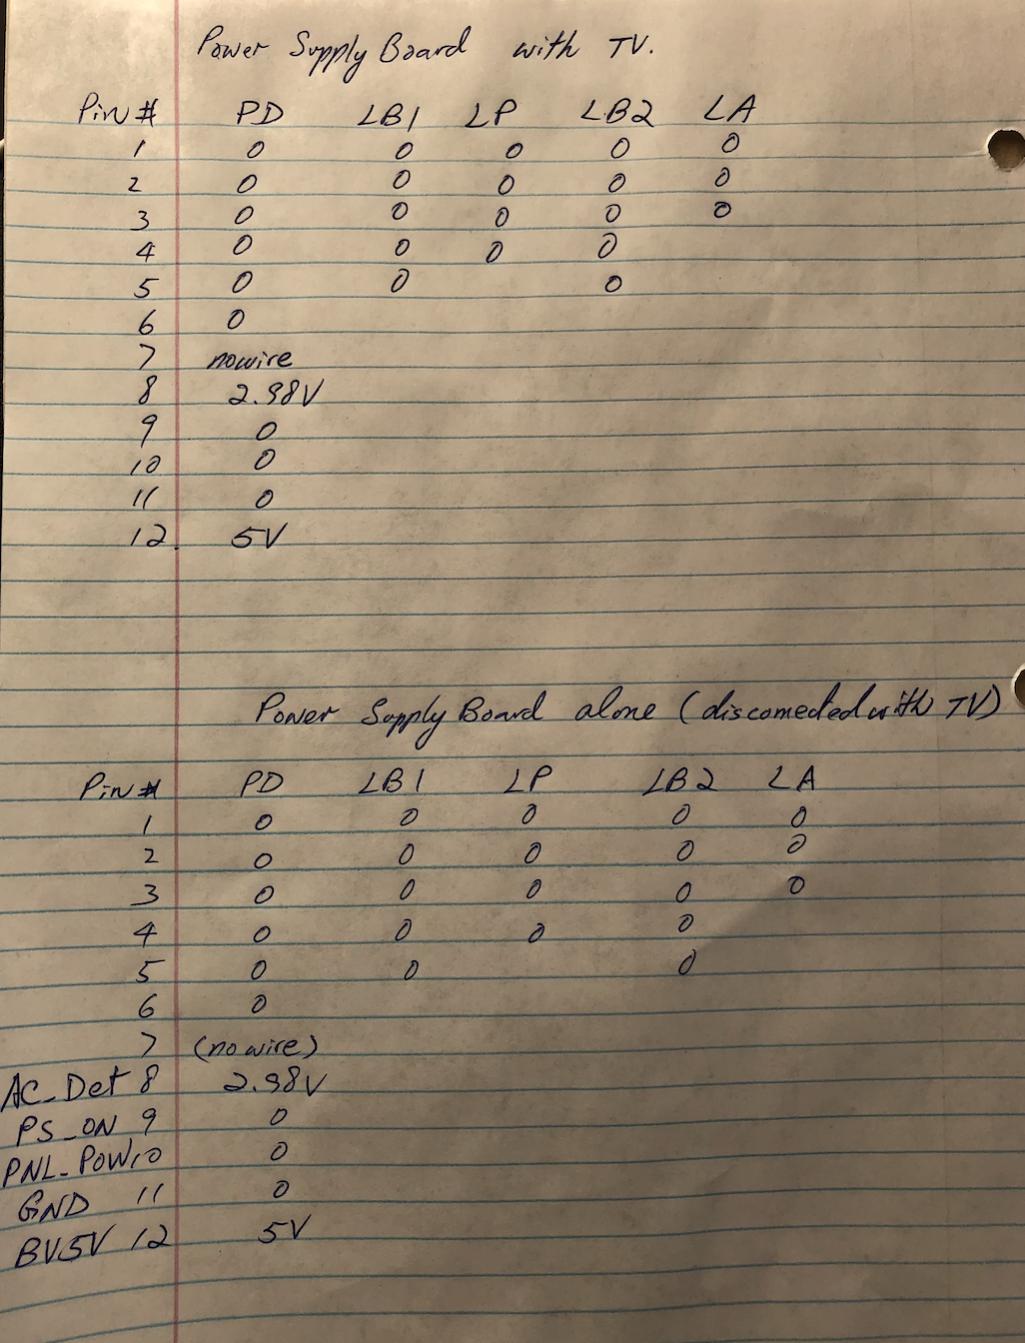 Power Supply Board with TV.
Pin # PD LB1 LP LB2 LA
1 0 0 0 0 0
2 0 0 0 0 0
3 0 0 0 0 0
4 0 0 0 0
5 0 0 0
6 0
7 nowire
8 2.98V
9 0
10 0
11 0
12. 5V
Power Supply Board alone (disconnected with TV)
Pin # PD LB1 LP LB2 LA
1 0 0 0 0 0
2 0 0 0 0 0
3 0 0 0 0 0
4 0 0 0 0
5 0 0 0
6 0
7 (no wire)
AC_Det 8 2.98V
PS_ON 9 0
PNL_POW10 0
GND 11 0
BV5V 12 5V